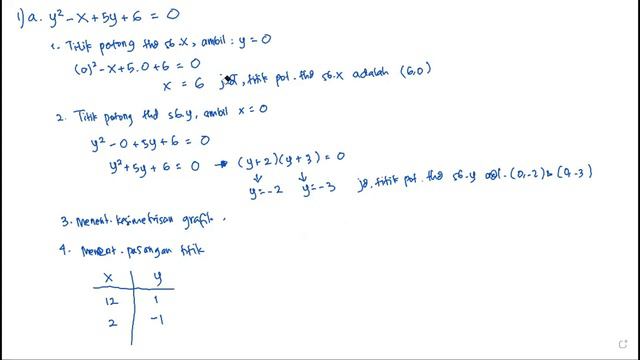 1) a. y² - x + 5y + 6 = 0
1. Titik potong thd sb.x, ambil : y = 0
(0)² - x + 5.0 + 6 = 0
x = 6 jdi, titik pot. thd sb.x adalah (6,0)
2. Titik potong thd sb.y, ambil x = 0
y² - 0 + 5y + 6 = 0
y² + 5y + 6 = 0 → (y+2)(y+3) = 0
↓ ↓
y = -2 y = -3 jd. titik pot. thd sb.y adl. (0,-2) & (0,-3)
3. Menent. kesimetrisan grafik.
4. pasangan titik
x y
12 1
2 -1